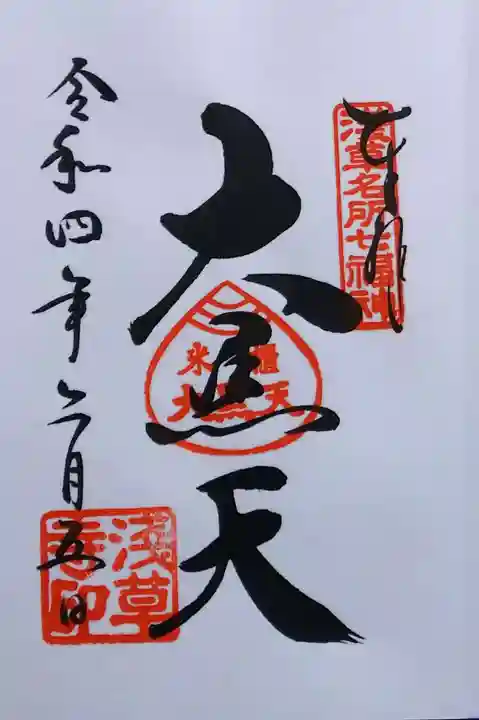 奉拝
浅草名所七福神
大黒天
米櫃
大黒天
令和四年六月五日
浅草
寺印